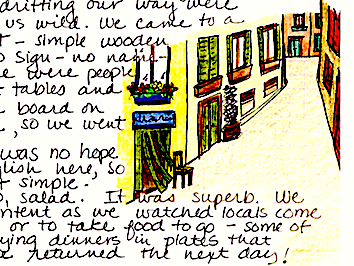 drifting our way were
us wild. We came to a
t - simple wooden
o sign - no name -
e were people
t tables and
board on
, so we went
was no hope.
glish here, so
t simple.
o, salad. It was superb. We
ntent as we watched locals come
or to take food to go - some of
ying dinners in plates that
returned the next day!